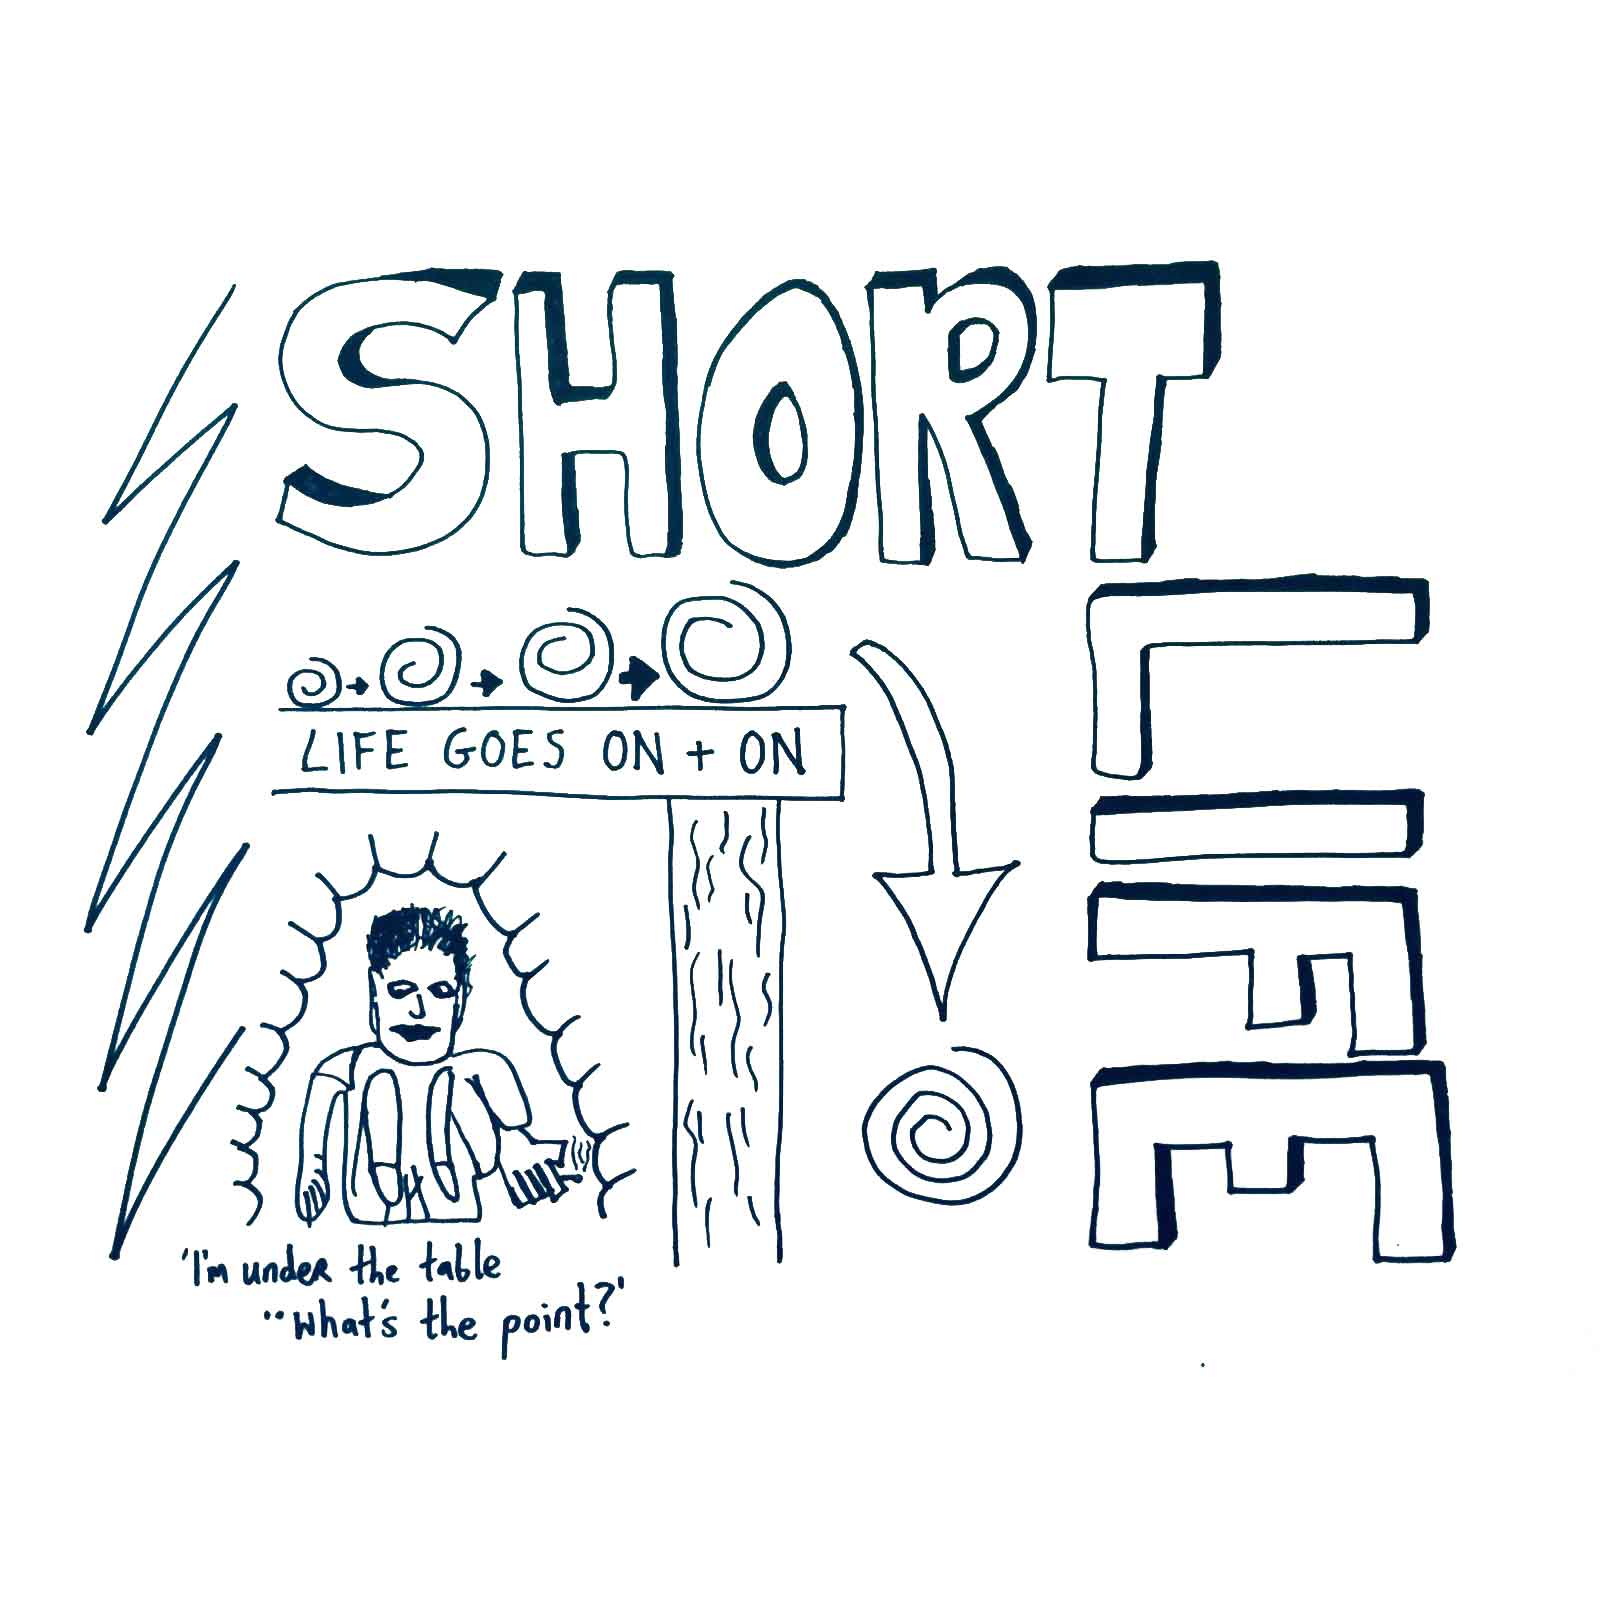 SHORT
LIFE
LIFE GOES ON + ON
'I'm under the table
..what's the point?'